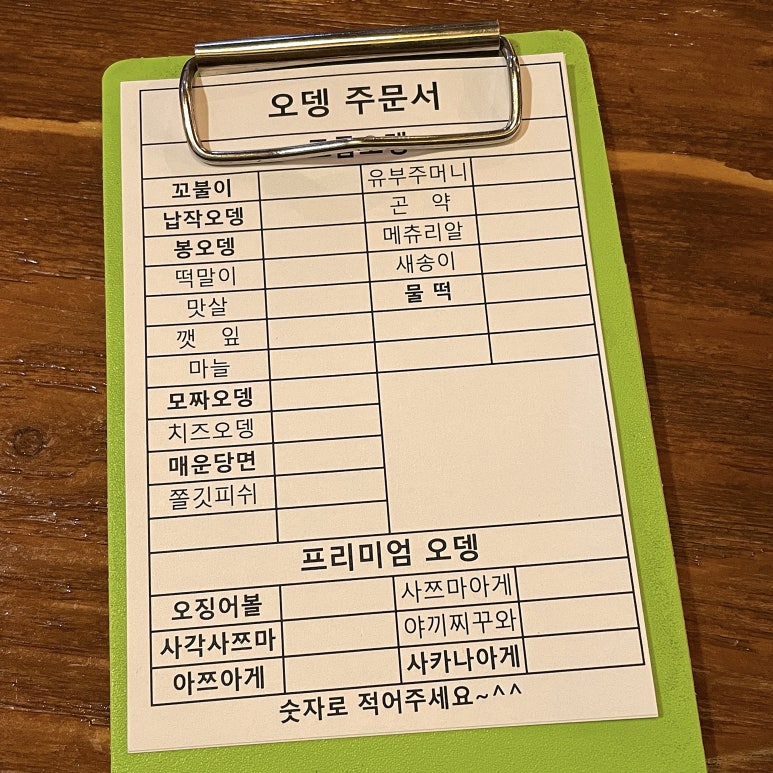 오뎅 주문서
꼬불이 유부주머니
납작오뎅 곤 약
봉오뎅 메츄리알
떡말이 새송이
맛살 물 떡
깻 잎
마늘
모짜오뎅
치즈오뎅
매운당면
쫄깃피쉬
프리미엄 오뎅
오징어볼 사쯔마아게
사각사쯔마 야끼찌꾸와
아쯔아게 사카나아게
숫자로 적어주세요~^^